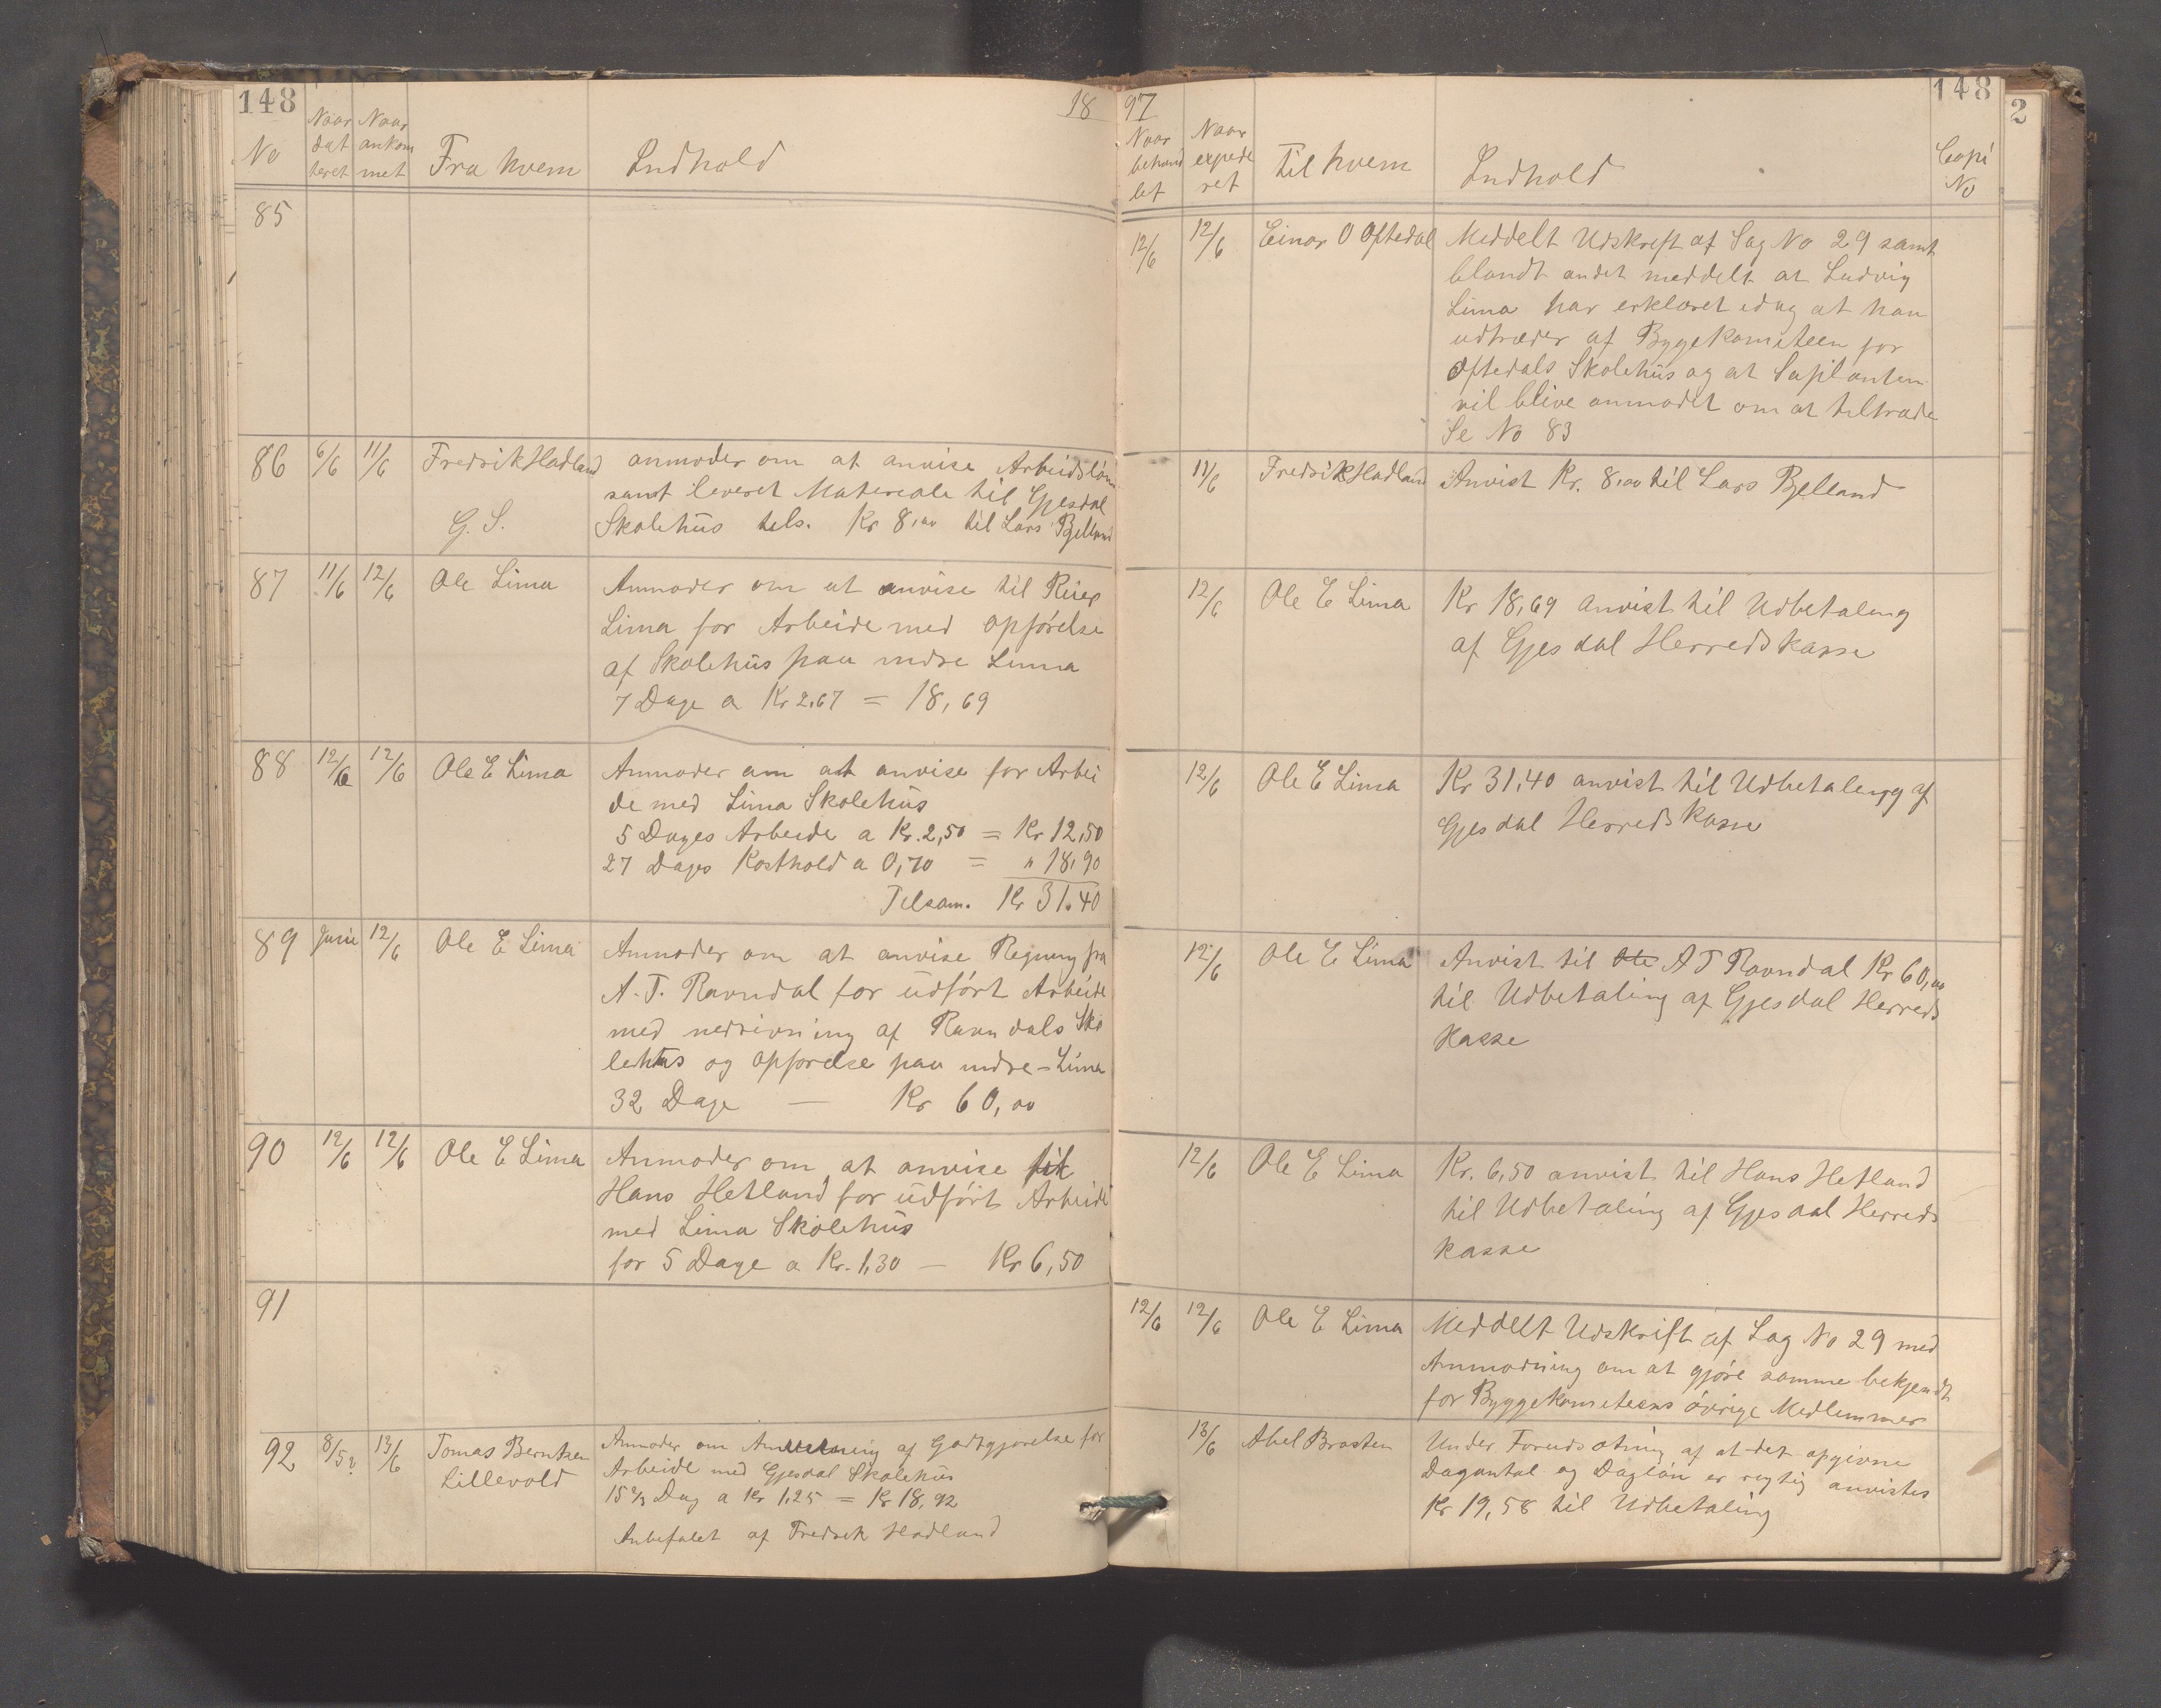 148
18
No
Naar datteret
Naar ankommet
Fra hvem
Indhold
85
86 6/6 11/6 Fredrik Hadland anmoder om at anvise Arbeidsløn
samt leveret Materiale til Gjesdal
G. S. Skolehus tils. Kr 8,00 til Lars Bjelland
87 11/6 12/6 Ole Lima Anmoder om at anvise til Reier
Lima for Arbeide med Opførelse
af Skolehus paa indre Lima
7 Dage a Kr 2,67 = 18,69
88 12/6 12/6 Ole E Lima Anmoder om at anvise for Arbei
de med Lima Skolehus
5 Dages Arbeide a Kr. 2,50 = Kr 12,50
27 Dages Kosthold a 0,70 = " 18,90
Tilsam. Kr 31.40
89 Juni 12/6 Ole E Lima Anmoder om at anvise Regning fra
A. T. Ravndal for udført Arbeide
med nedrivning af Ravndals Sko
lehus og opførelse paa indre-Lima
32 Dage — Kr 60,00
90 12/6 12/6 Ole E Lima Anmoder om at anvise til
Hans Hetland for udført Arbeide
med Lima Skolehus
for 5 Dage a Kr. 1,30 — Kr 6,50
91
92 8/5 ? 13/6 Tomas Berntsen Anmoder om Anvisning af Godtgjørelse for
Lillevold Arbeide med Gjesdal Skolehus
15 2/3 Dag a Kr 1,25 = Kr 18,92
Anbefalet af Fredrik Hadland
97
148
2
Naar behandlet
Naar expederet
Til hvem
Indhold
Copi No
12/6 12/6 Einar O Oftedal Meddelt Udskrift af Sag No 29 samt
blandt andet meddelt at Ludvig
Lima har erklæret idag at han
udtræder af Byggekomiteen for
Oftedals Skolehus og at Suplanten
vil blive anmodet om at tiltræde
Se No 83
11/6 Fredrik Hadland Anvist Kr. 8,00 til Lars Bjelland
12/6 Ole E Lima Kr 18,69 Anvist til Udbetaling
af Gjesdal Herredskasse
12/6 Ole E Lima Kr 31,40 anvist til Udbetaling af
Gjesdal Herredskasse
12/6 Ole E Lima Anvist til Ole A T Ravndal Kr 60,00
til Udbetaling af Gjesdal Herreds
kasse
12/6 Ole E Lima Kr. 6,50 anvist til Hans Hetland
til Udbetaling af Gjesdal Herreds
kasse
12/6 12/6 Ole E Lima Meddelt Udskrift af Sag No 29 med
Anmodning om at gjøre samme bekjendt
for Byggekomiteens øvrige Medlemmer
13/6 Abel Brosten Under Forudsætning af at det opgivne
Dagantal og Dagløn er rigtig anvistes
Kr 19,58 til Udbetaling